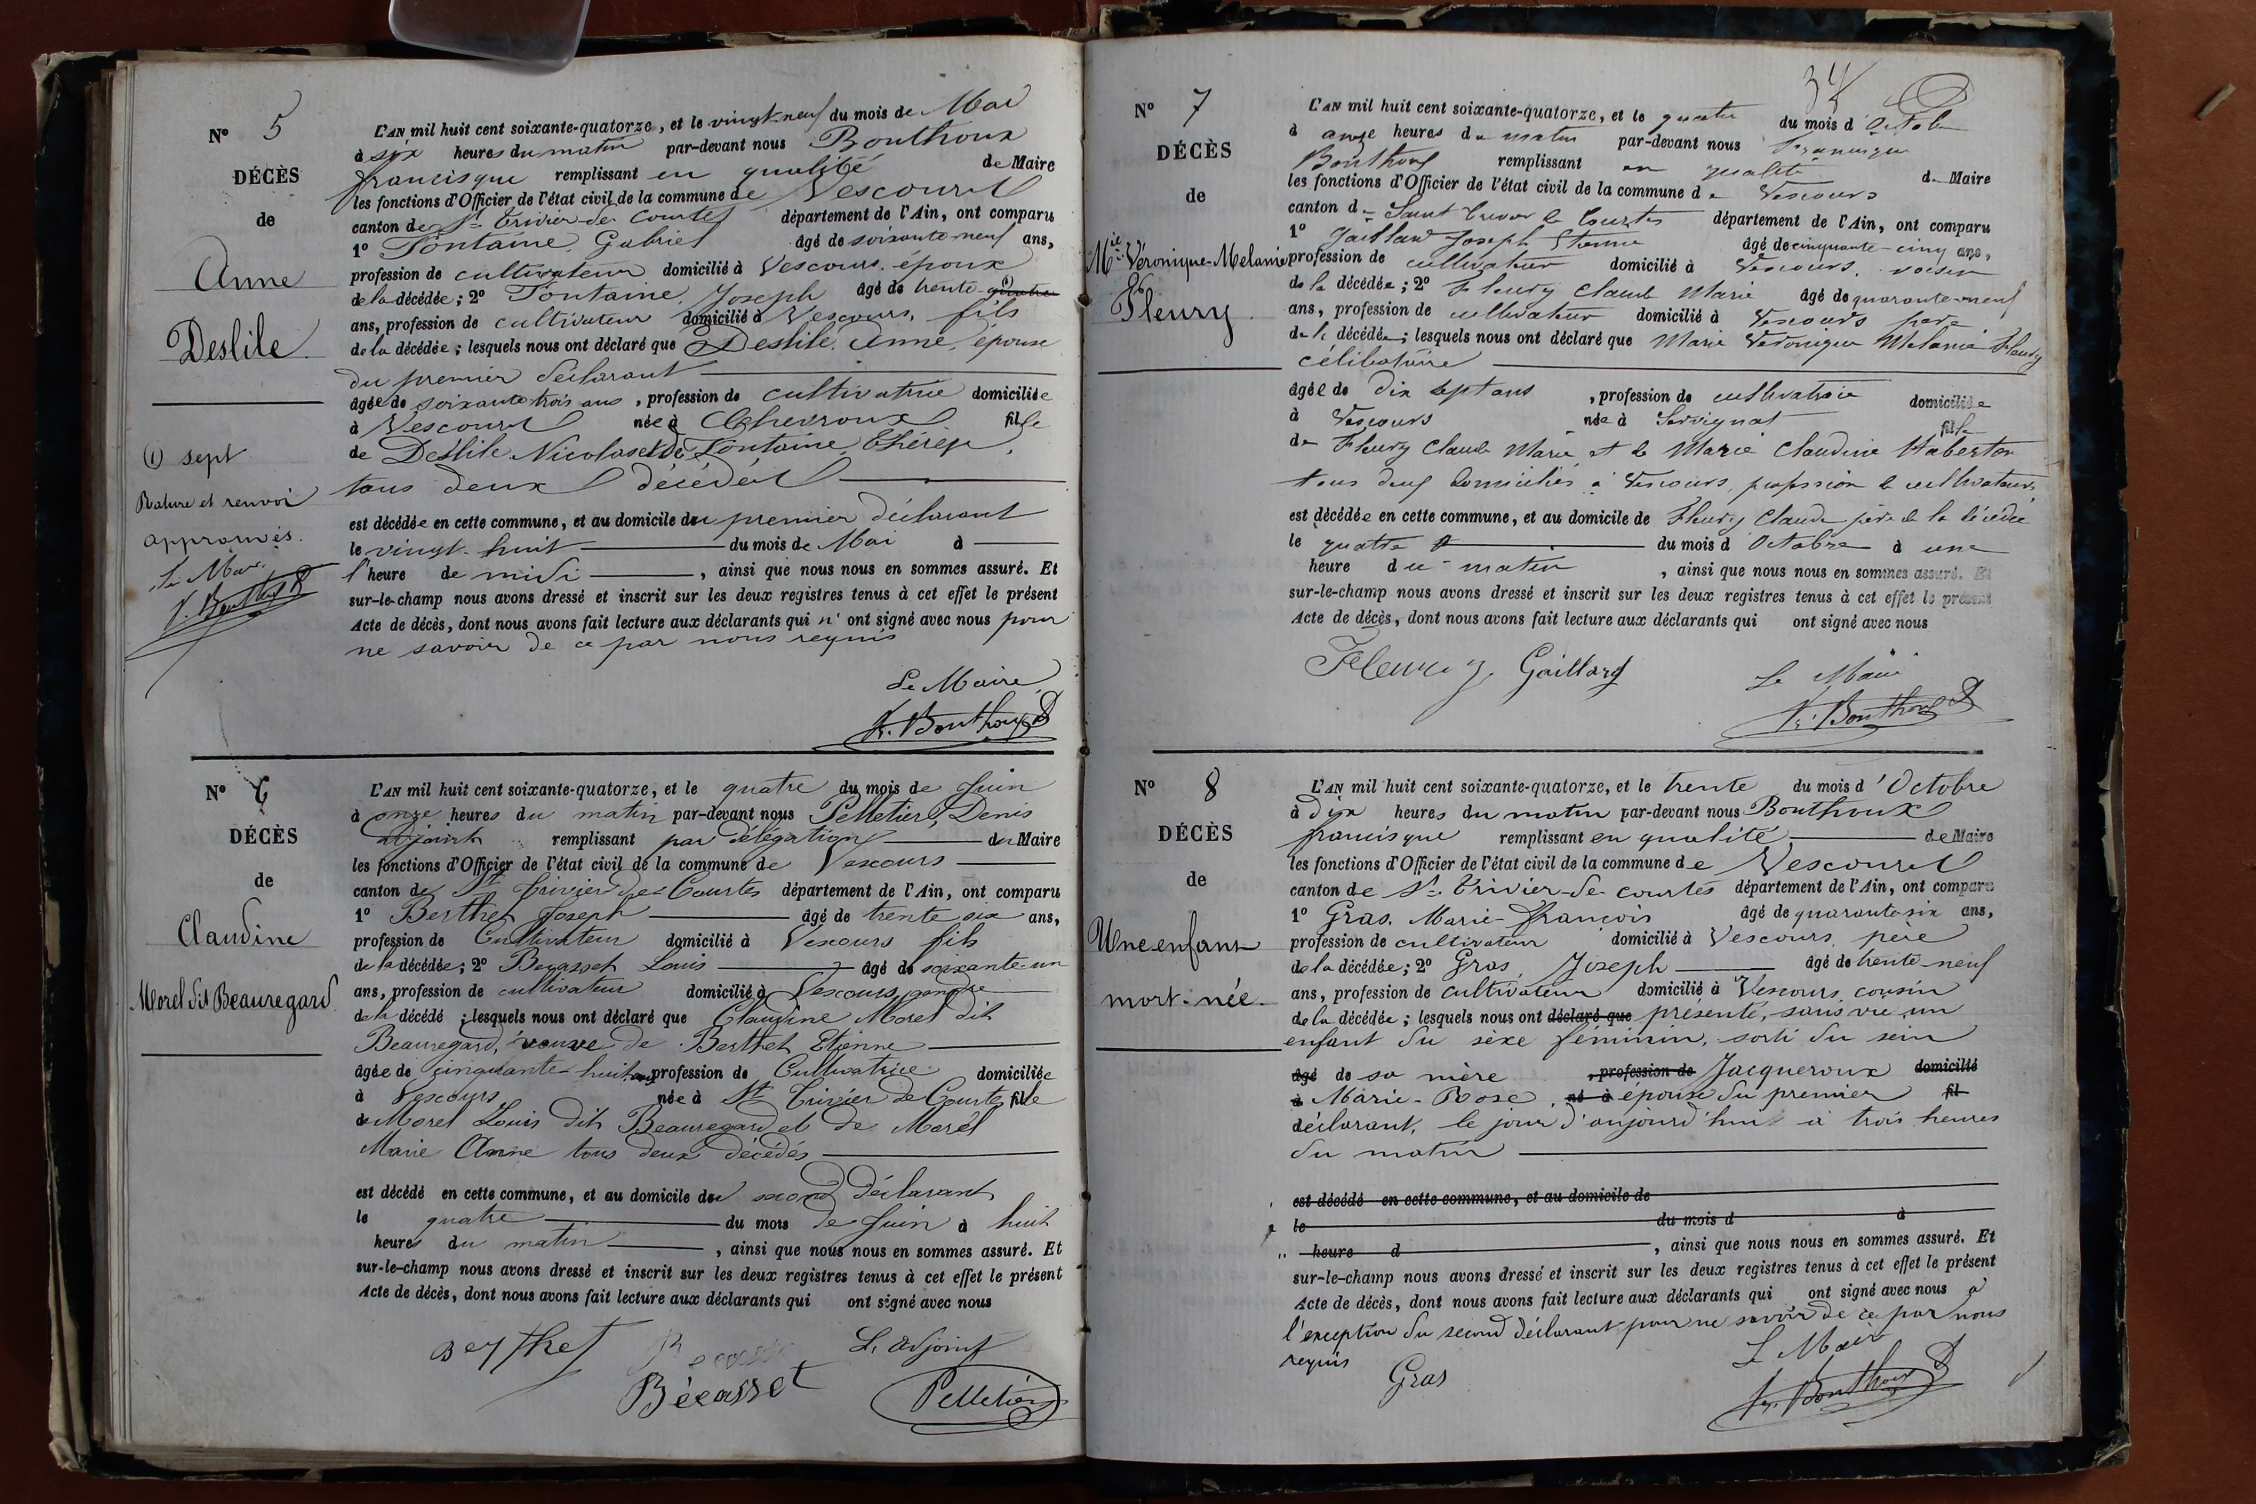 N° 5
DÉCÈS
de
Anne
Deslile
(1) sept
Rature et renvoi
approuvés.
Le Maire
F. Bonthoux
L'AN mil huit cent soixante-quatorze, et le vingt-neuf du mois de Mai
à six heures du matin par-devant nous Bonthoux
francisque remplissant en qualité de Maire
les fonctions d'Officier de l'état civil de la commune de Vescours
canton de St Trivier-de-Courtes département de l'Ain, ont comparu
1° Fontaine, Gabriel âgé de soixante-neuf ans,
profession de cultivateur domicilié à Vescours, époux
de la décédée; 2° Fontaine, Joseph âgé de trente-quatre (1)
ans, profession de cultivateur domicilié à Vescours, fils
de la décédée; lesquels nous ont déclaré que Deslile, Anne, épouse
du premier déclarant
âgée de soixante trois ans, profession de cultivatrice domiciliée
à Vescours née à Chevroux fille
de Deslile Nicolas et de Fontaine, Thérèse,
tous deux décédés
est décédée en cette commune, et au domicile du premier déclarant
le vingt-huit du mois de Mai à
l'heure de midi, ainsi que nous nous en sommes assuré. Et
sur-le-champ nous avons dressé et inscrit sur les deux registres tenus à cet effet le présent
Acte de décès, dont nous avons fait lecture aux déclarants qui n'ont signé avec nous pour
ne savoir de ce par nous requis
Le Maire
Fr. Bonthoux
N° 6
DÉCÈS
de
Claudine
Morel dit Beauregard
L'AN mil huit cent soixante-quatorze, et le quatre du mois de Juin
à onze heures du matin par-devant nous Pelletier, Denis
adjoint remplissant par délégation du Maire
les fonctions d'Officier de l'état civil de la commune de Vescours
canton de St Trivier de Courtes département de l'Ain, ont comparu
1° Berthet Joseph âgé de trente six ans,
profession de Cultivateur domicilié à Vescours fils
de la décédée; 2° Becasset Louis âgé de soixante-un
ans, profession de cultivateur domicilié à Vescours, gendre
de la décédé; lesquels nous ont déclaré que Claudine Morel dit
Beauregard, veuve de Berthet Etienne
âgée de cinquante-huit ans profession de Cultivatrice domiciliée
à Vescours née à St Trivier de Courtes fille
de Morel Louis dit Beauregard et de Morel
Marie Anne tous deux décédés
est décédé en cette commune, et au domicile du second déclarant
le quatre du mois de Juin à huit
heures du matin, ainsi que nous nous en sommes assuré. Et
sur-le-champ nous avons dressé et inscrit sur les deux registres tenus à cet effet le présent
Acte de décès, dont nous avons fait lecture aux déclarants qui ont signé avec nous
Berthet L'adjoint
Bécasset Pelletier
34
N° 7
DÉCÈS
de
Mie Véronique-Melanie
Fleury
L'AN mil huit cent soixante-quatorze, et le quatre du mois d'Octobre
à onze heures du matin par-devant nous Francisque
Bonthoux remplissant en qualité de Maire
les fonctions d'Officier de l'état civil de la commune de Vescours
canton de Saint Trivier de Courtes département de l'Ain, ont comparu
1° Gaillard Joseph Etienne âgé de cinquante-cinq ans,
profession de cultivateur domicilié à Vescours, voisin
de la décédée; 2° Fleury Claude Marie âgé de quarante-neuf
ans, profession de cultivateur domicilié à Vescours père
de la décédée; lesquels nous ont déclaré que Marie Veronique Melanie Fleury
célibataire
âgée de dix sept ans, profession de cultivatrice domiciliée
à Vescours née à Servignat fille
de Fleury Claude Marie et de Marie Claudine Haberton
tous deux domiciliés à Vescours, profession de cultivateurs
est décédée en cette commune, et au domicile de Fleury Claude père de la décédée
le quatre du mois d'Octobre à une
heure du matin, ainsi que nous nous en sommes assuré. Et
sur-le-champ nous avons dressé et inscrit sur les deux registres tenus à cet effet le présent
Acte de décès, dont nous avons fait lecture aux déclarants qui ont signé avec nous
Fleury Gaillard Le Maire
Fr. Bonthoux
N° 8
DÉCÈS
de
Une enfant
mort-née
L'AN mil huit cent soixante-quatorze, et le trente du mois d'Octobre
à dix heures du matin par-devant nous Bonthoux
francisque remplissant en qualité de Maire
les fonctions d'Officier de l'état civil de la commune de Vescours
canton de St Trivier-de-Courtes département de l'Ain, ont comparu
1° Gras, Marie-François âgé de quarante six ans,
profession de cultivateur domicilié à Vescours, père
de la décédée; 2° Gras, Joseph âgé de trente-neuf
ans, profession de cultivateur domicilié à Vescours, cousin
de la décédée; lesquels nous ont déclaré que présenté, sans vie un
enfant du sèxe féminin, sorti du sein
âgé de sa mère, profession de Jacqueroux domicilié
à Marie-Rose, né à épouse du premier fil
déclarant, le jour d'aujourd'hui à trois heures
du matin
est décédé en cette commune, et au domicile de
le du mois d à
heure d, ainsi que nous nous en sommes assuré. Et
sur-le-champ nous avons dressé et inscrit sur les deux registres tenus à cet effet le présent
Acte de décès, dont nous avons fait lecture aux déclarants qui ont signé avec nous à
l'exception du second déclarant pour ne savoir de ce par nous
requis
Le Maire
Gras
Fr. Bonthoux